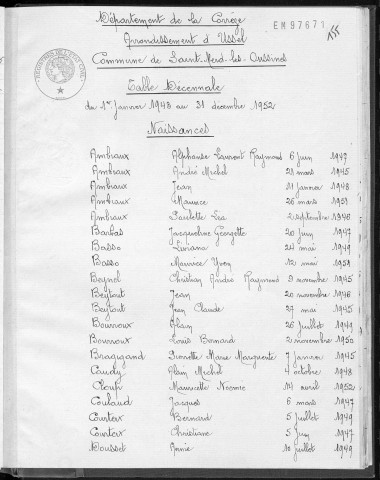 EM97671
155
Département de la Corrèze
Arrondissement d'Ussel
Commune de Saint-Merd-les-Oussines
Table Décennale
du 1er janvier 1943 au 31 décembre 1952
Naissances
Ambiaux Alphonse Laurent Raymond 6 juin 1947
Ambiaux André Michel 21 mars 1945
Ambiaux Jean 11 janvier 1948
Ambiaux Maurice 26 mars 1951
Ambiaux Paulette Léa 2 septembre 1946
Barbat Jacqueline Georgette 20 juin 1947
Basso Liviana 24 mai 1949
Basso Maurice Yvon 12 mai 1951
Beynel Christian André Raymond 9 novembre 1945
Beytout Jean 20 novembre 1946
Beytout Jean Claude 27 mai 1945
Bournoux Alain 26 juillet 1949
Bournoux Louis Bernard 2 novembre 1950
Bragigand Pierrette Marie Marguerite 7 janvier 1945
Caudy Alain Michel 4 octobre 1948
Cloup Mauricette Noémie 14 avril 1952
Coulaud Jacques 6 mars 1947
Courteix Bernard 5 juillet 1949
Courteix Christiane 5 juin 1947
Dousset Annie 10 juillet 1949